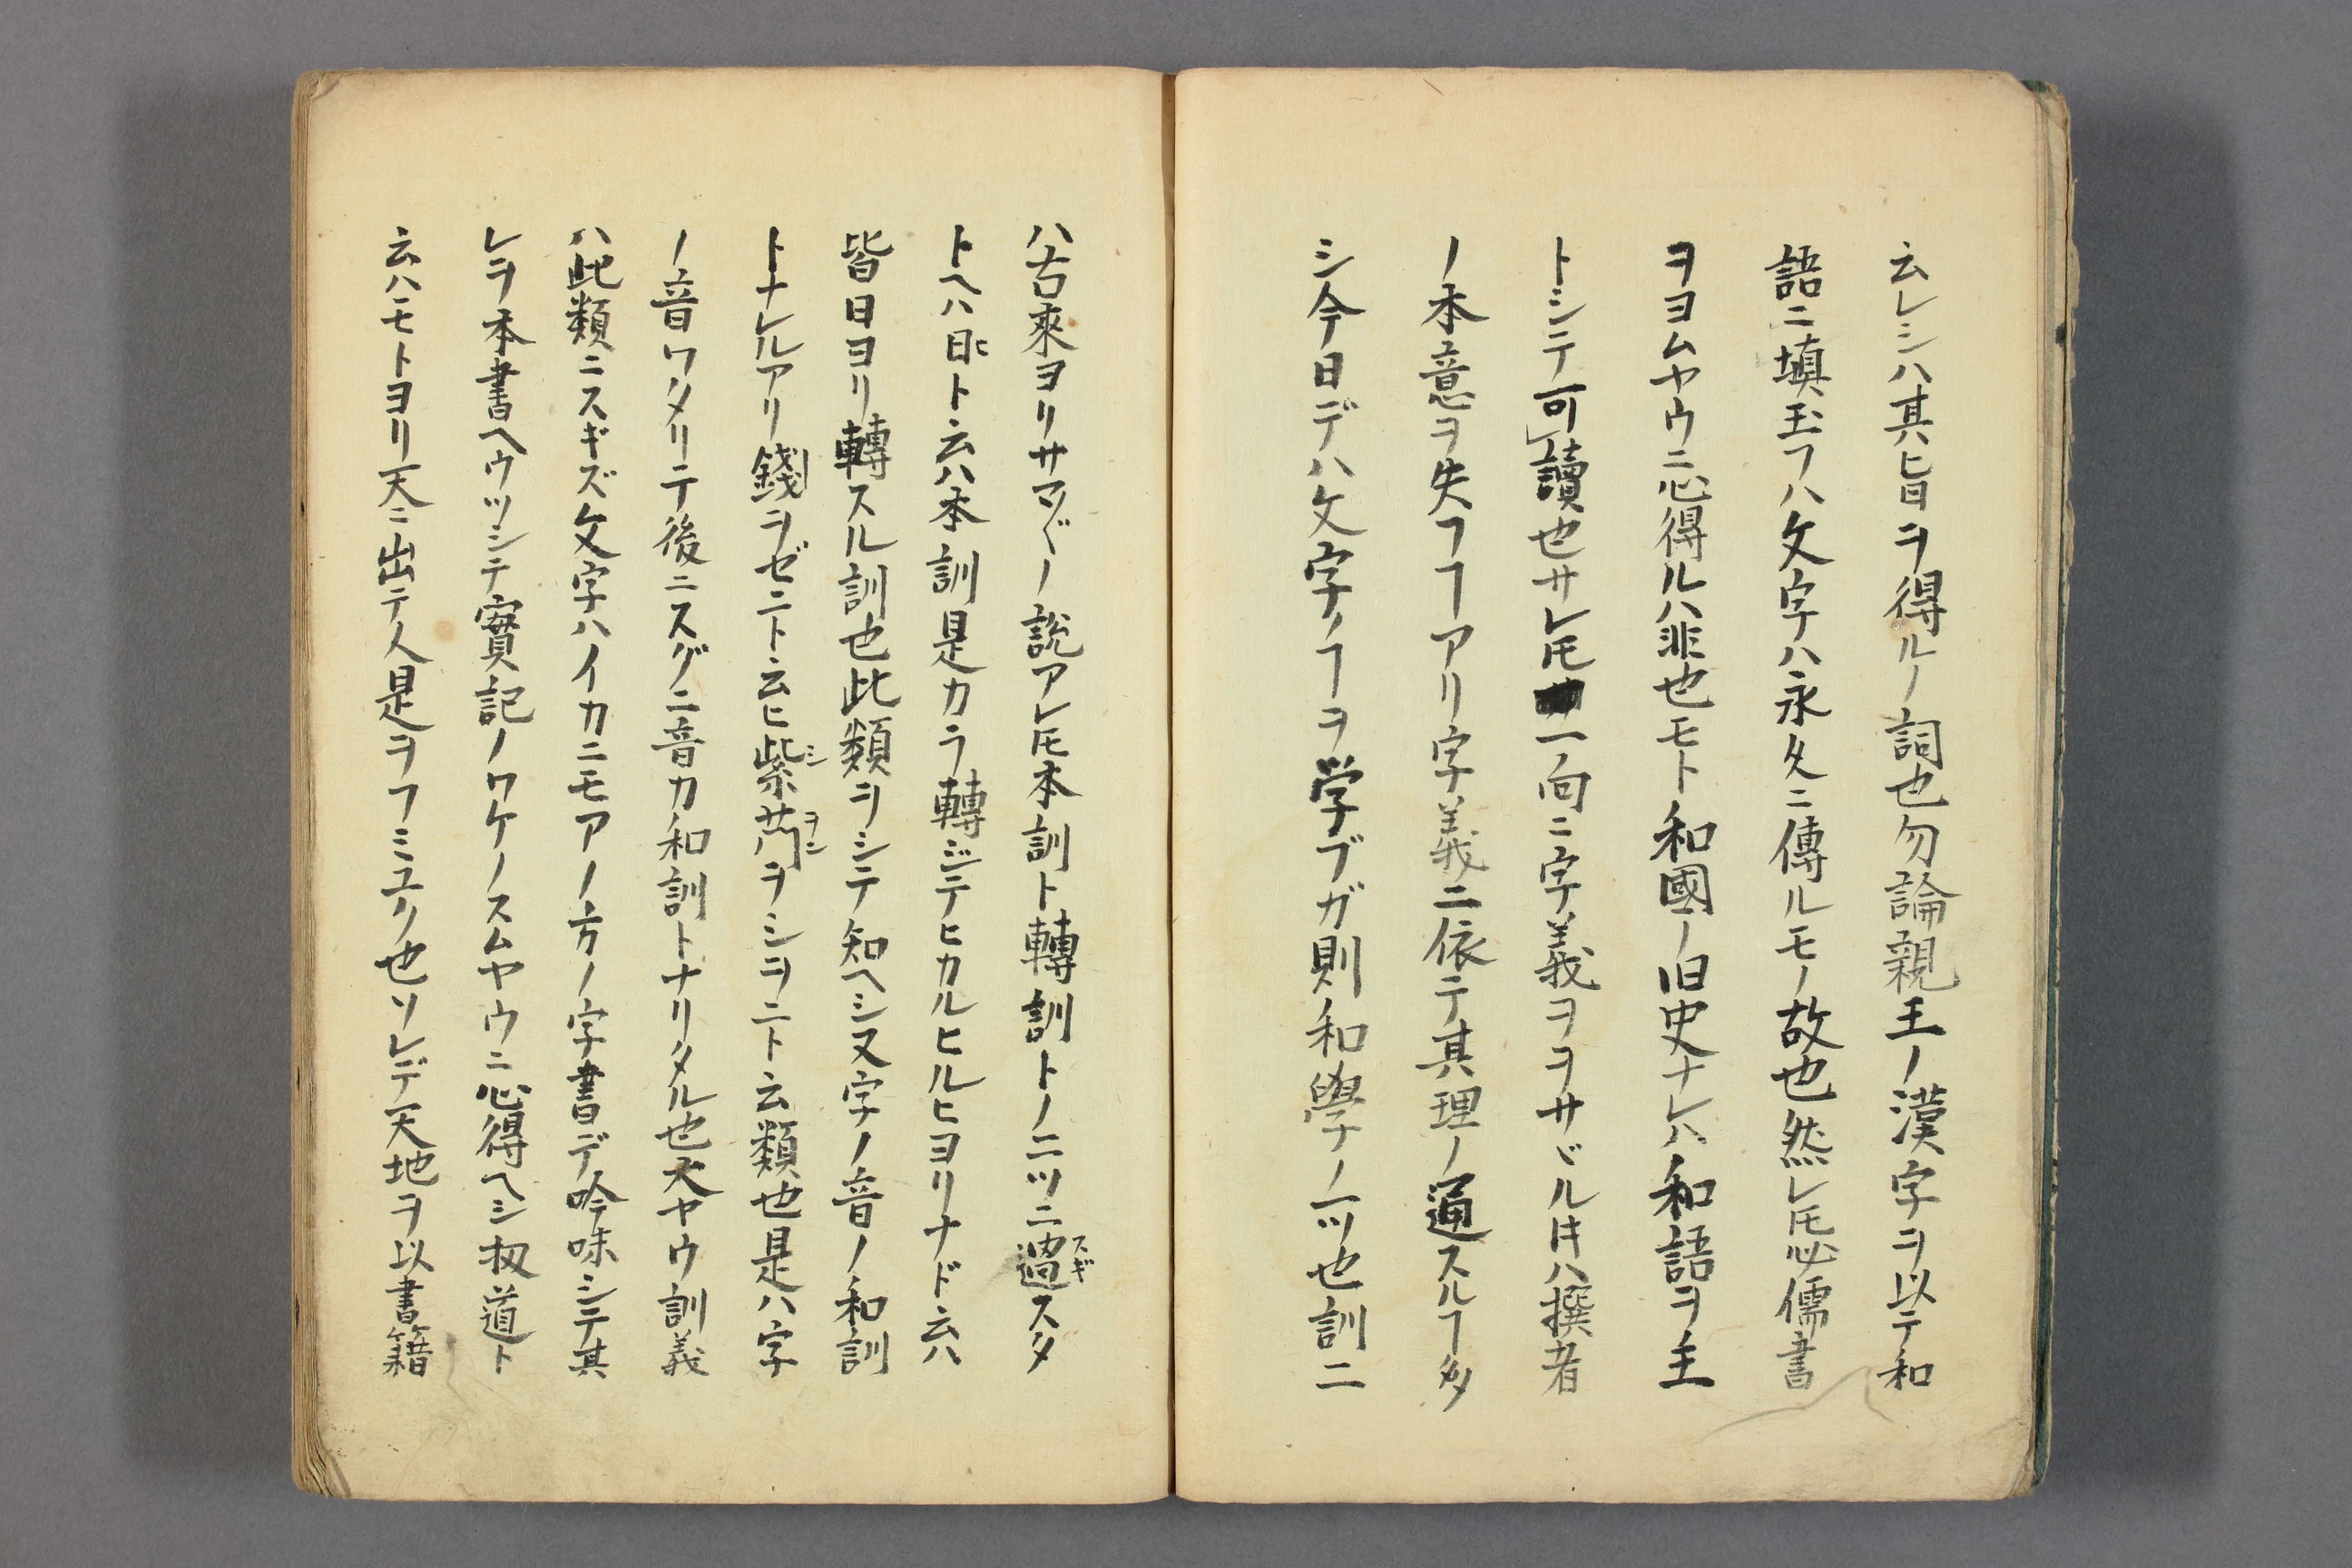 云レシハ其旨ヲ得ルノ詞也勿論親王ノ漢字ヲ以テ和
語ニ填玉フハ文字ハ永久ニ傳ルモノ故也然レ𪜈必儒書
ヲヨムヤウニ心得ルハ非也モト和國ノ旧史ナレハ和語ヲ主
トシテ可讀也サレ𪜈一向ニ字義ヲヲサヾルキハ撰者
ノ本意ヲ失フヿアリ字義ニ依テ其理ノ通スルヿ多
シ今日デハ文字ノヿヲ学ブガ則和學ノ一ツ也訓ニ
ハ古來ヨリサマ〴〵ノ説アレ𪜈本訓ト轉訓トノ二ツニ過スギスタ
トヘハ日ヒト云ハ本訓是カラ轉ジテヒカルヒルヒヨリナド云ハ
皆日ヨリ轉スル訓也此類ヲシテ知ヘシ又字ノ音ノ和訓
トナレルアリ錢ヲゼニト云ヒ紫シ菀ヲンヲシヲニト云類也是ハ字
ノ音ワタリテ後ニスグニ音カ和訓トナリタル也大ヤウ訓義
ハ此類ニスギズ文字ハイカニモアノ方ノ字書デ吟味シテ其
レヲ本書ヘウツシテ實記ノワケノスムヤウニ心得ヘシ扨道ト
云ハモトヨリ天ニ出テ人是ヲフミユク也ソレデ天地ヲ以書籍